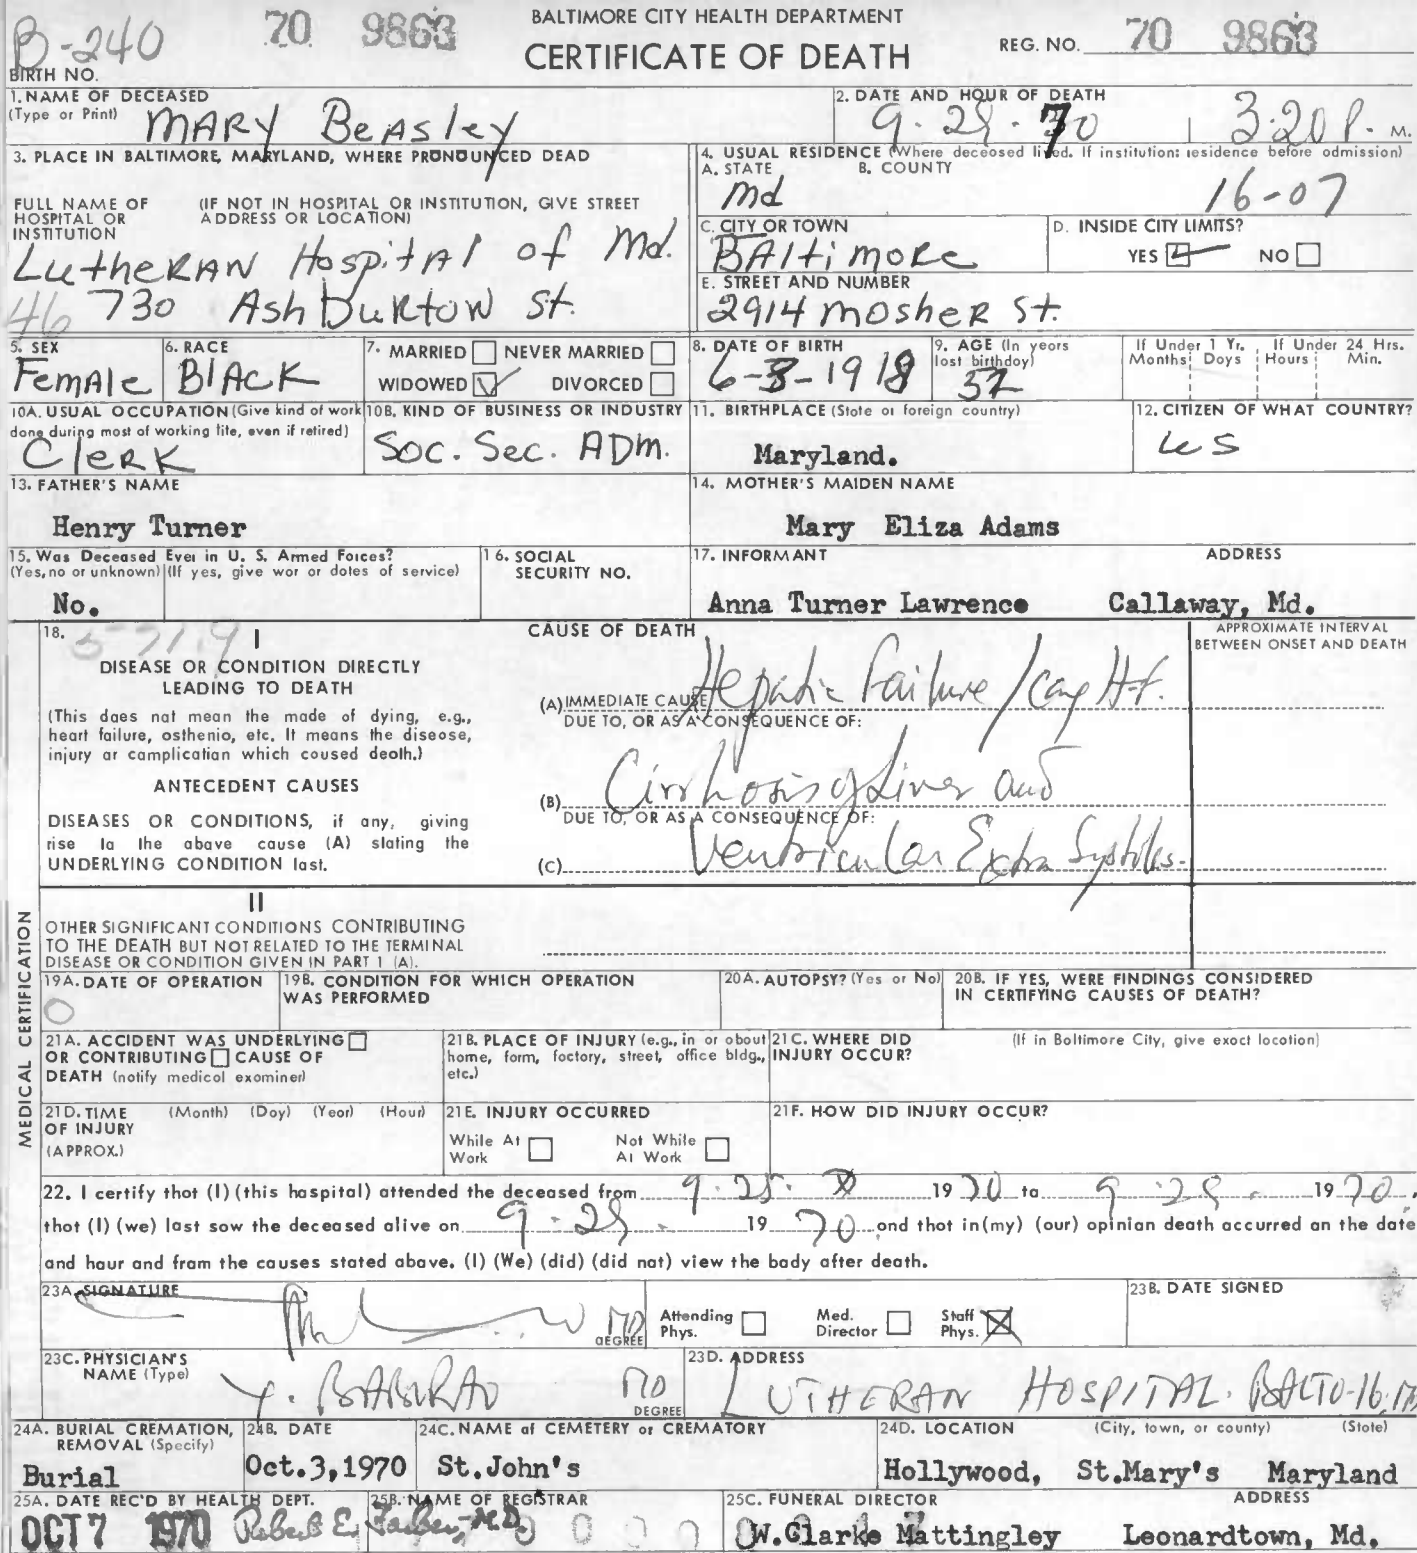 B-240 70 9863 BALTIMORE CITY HEALTH DEPARTMENT
BIRTH NO. CERTIFICATE OF DEATH REG. NO. 70 9863
1. NAME OF DECEASED
(Type or Print) MARY BeAsley
2. DATE AND HOUR OF DEATH
9-29-70 3:20 P. M.
3. PLACE IN BALTIMORE, MARYLAND, WHERE PRONOUNCED DEAD
FULL NAME OF HOSPITAL OR INSTITUTION (IF NOT IN HOSPITAL OR INSTITUTION, GIVE STREET ADDRESS OR LOCATION)
LutheRAN HospitAl of Md.
46 730 AshbuRtoN St.
4. USUAL RESIDENCE (Where deceased lived. If institution: residence before admission)
A. STATE B. COUNTY
Md 16-07
C. CITY OR TOWN D. INSIDE CITY LIMITS?
BAltimoRe YES NO
E. STREET AND NUMBER
2914 MosheR St.
5. SEX 6. RACE 7. MARRIED NEVER MARRIED 8. DATE OF BIRTH 9. AGE (In years last birthday) If Under 1 Yr. If Under 24 Hrs.
Months Days Hours Min.
FemAle BlAcK WIDOWED DIVORCED 6-3-1918 52
10A. USUAL OCCUPATION (Give kind of work done during most of working life, even if retired) 10B. KIND OF BUSINESS OR INDUSTRY 11. BIRTHPLACE (State or foreign country) 12. CITIZEN OF WHAT COUNTRY?
CleRK Soc. Sec. ADm. Maryland. US
13. FATHER'S NAME 14. MOTHER'S MAIDEN NAME
Henry Turner Mary Eliza Adams
15. Was Deceased Ever in U. S. Armed Forces? 16. SOCIAL SECURITY NO. 17. INFORMANT ADDRESS
(Yes, no or unknown) (If yes, give war or dates of service)
No. Anna Turner Lawrence Callaway, Md.
18. 571.9 I CAUSE OF DEATH APPROXIMATE INTERVAL BETWEEN ONSET AND DEATH
DISEASE OR CONDITION DIRECTLY
LEADING TO DEATH
(This does not mean the mode of dying, e.g.,
heart failure, asthenia, etc. It means the disease,
injury or complication which caused death.)
ANTECEDENT CAUSES
DISEASES OR CONDITIONS, if any, giving
rise to the above cause (A) stating the
UNDERLYING CONDITION last.
(A) IMMEDIATE CAUSE Hepatic Failure / Cong H.f.
DUE TO, OR AS A CONSEQUENCE OF:
(B) Cirrhosis of Liver and
DUE TO, OR AS A CONSEQUENCE OF:
(C) Ventricular Extra Systoles.
II
OTHER SIGNIFICANT CONDITIONS CONTRIBUTING
TO THE DEATH BUT NOT RELATED TO THE TERMINAL
DISEASE OR CONDITION GIVEN IN PART 1 (A).
MEDICAL CERTIFICATION
19A. DATE OF OPERATION 19B. CONDITION FOR WHICH OPERATION WAS PERFORMED 20A. AUTOPSY? (Yes or No) 20B. IF YES, WERE FINDINGS CONSIDERED IN CERTIFYING CAUSES OF DEATH?
0
21A. ACCIDENT WAS UNDERLYING
OR CONTRIBUTING CAUSE OF
DEATH (notify medical examiner)
21B. PLACE OF INJURY (e.g., in or about
home, farm, factory, street, office bldg.,
etc.)
21C. WHERE DID INJURY OCCUR? (If in Baltimore City, give exact location)
21D. TIME OF INJURY (APPROX.) (Month) (Day) (Year) (Hour)
21E. INJURY OCCURRED
While At Work Not While At Work
21F. HOW DID INJURY OCCUR?
22. I certify that (I) (this hospital) attended the deceased from 9-25- 1970 to 9-29- 1970,
that (I) (we) last saw the deceased alive on 9-29- 1970 and that in (my) (our) opinion death occurred on the date
and hour and from the causes stated above. (I) (We) (did) (did not) view the body after death.
23A. SIGNATURE MD DEGREE Attending Phys. Med. Director Staff Phys. 23B. DATE SIGNED
23C. PHYSICIAN'S NAME (Type) Y. BABURAO MD DEGREE
23D. ADDRESS LUTHERAN HOSPITAL. BALTO-16, MD
24A. BURIAL CREMATION, REMOVAL (Specify) 24B. DATE 24C. NAME of CEMETERY or CREMATORY 24D. LOCATION (City, town, or county) (State)
Burial Oct.3,1970 St.John's Hollywood, St.Mary's Maryland
25A. DATE REC'D BY HEALTH DEPT. 25B. NAME OF REGISTRAR 25C. FUNERAL DIRECTOR ADDRESS
OCT 7 1970 Robert E. Farber, M.D. W.Clarke Mattingley Leonardtown, Md.